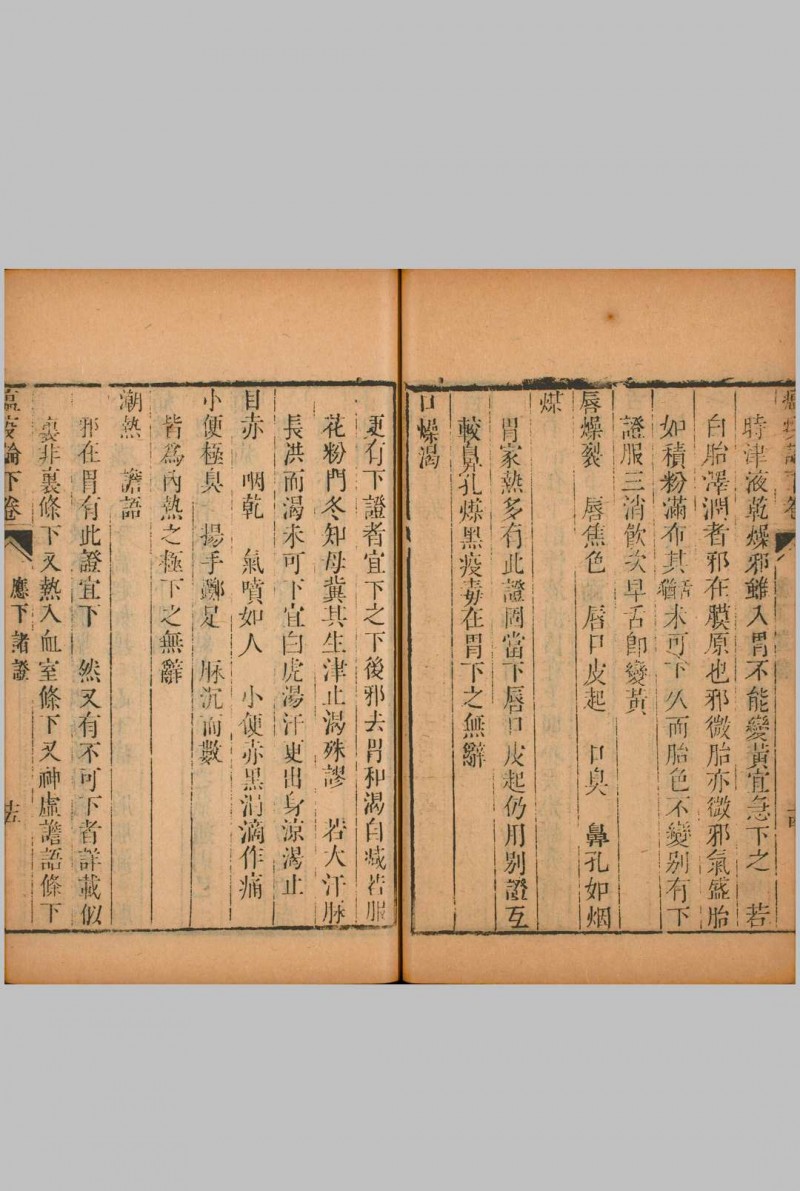 時津液乾燥邪雖入胃不能變黃宜急下之　若
白胎澤潤者邪在膜原也邪微胎亦微邪氣盛胎
如積粉滿布其舌猶未可下久而胎色不變別有下
證服三消飲次早舌即變黃
唇燥裂　唇焦色　唇口皮起　口臭　鼻孔如烟
煤
胃家熱多有此證固當下唇口皮起仍用別證互
較鼻孔煤黑疫毒在胃下之無辭
口燥渴
更有下證者宜下之下後邪去胃和渴自減若服
花粉門冬知母冀其生津止渴殊謬　若大汗脉
長洪而渴未可下宜白虎湯汗更出身涼渴止
目赤　咽乾　氣噴如火　小便赤黑涓滴作痛
小便極臭　揚手擲足　脉沉而數
皆爲內熱之極下之無辭
潮熱　譫語
邪在胃有此證宜下　然又有不可下者詳載似
裏非裏條下又熱入血室條下又神虛譫語條下
瘟疫論下卷　應下諸證　十五